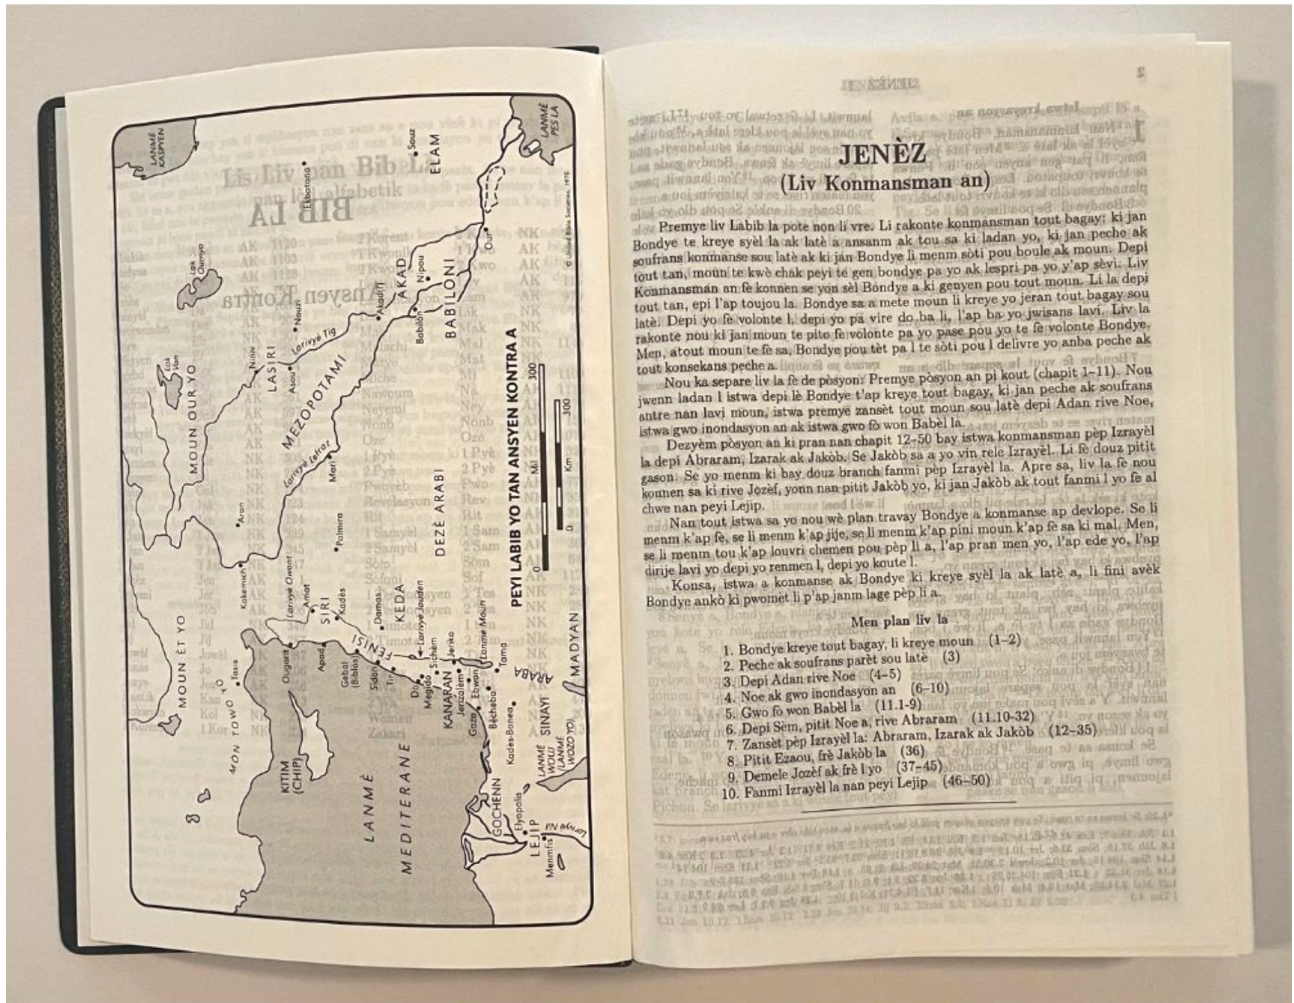 LANMÈ
KASPYEN
Ekbatana
Souz
ELAM
LANMÈ
PES LA
Lak
Oumya
MOUN OURYO
Lak
Van
Niniv
LASIRI
Asou
Nouzi
Larivyè Tig
Akad
AKAD
Nipou
Our
Babilòn
BABILONI
© United Bible Societies, 1976
MEZOPOTAMI
Larivyè Lefrat
Mari
PEYI LABIB YO TAN ANSYEN KONTRA A
0
Mil
300
0
Km
300
DEZÈ ARABI
Aran
Kakemich
Palmira
MOUN ÈT YO
Tasis
MON TOWO YO
Ougarit
Larivyè Owont
Amat
Apad
SIRI
Kadès
KEDA
Damas
Gebal
(Biblòs)
FENISI
Sidon
Tir
Larivyè Jouden
Dò
Megido
Sichèm
KANARAN
Jeriko
Jerizalèm
Lanmè Mouri
Gaza
Ebwon
Bècheba
Tama
ARABA
Kadès-Banea
SINAYI
MADYAN
KITIM
(CHIP)
LANMÈ
MEDITERANE
GOCHENN
Elyopolis
LEJIP
Menmfis
Larivyè Nil
LANMÈ
WOUJ
(LANMÈ
WOZO YO)
JENÈZ
(Liv Konmansman an)
Premye liv Labib la pote non li vre. Li rakonte konmansman tout bagay: ki jan
Bondye te kreye syèl la ak latè a ansanm ak tou sa ki ladan yo, ki jan peche ak
soufrans konmanse sou latè ak ki jan Bondye li menm sòti pou boule ak moun. Depi
tout tan, moun te kwè chak peyi te gen bondye pa yo ak lespri pa yo y'ap sèvi. Liv
Konmansman an fè konnen se yon sèl Bondye a ki genyen pou tout moun. Li la depi
tout tan, epi l'ap toujou la. Bondye sa a mete moun li kreye yo jeran tout bagay sou
latè: Depi yo fè volonte l, depi yo pa vire do ba li, l'ap ba yo jwisans lavi. Liv la
rakonte nou ki jan moun te pito fè volonte pa yo pase pou yo te fè volonte Bondye.
Men, atout moun te fè sa, Bondye pou tèt pa l te sòti pou l delivre yo anba peche ak
tout konsekans peche a.
Nou ka separe liv la fè de pòsyon: Premye pòsyon an pi kout (chapit 1–11). Nou
jwenn ladan l istwa depi lè Bondye t'ap kreye tout bagay, ki jan peche ak soufrans
antre nan lavi moun, istwa premye zansèt tout moun sou latè depi Adan rive Noe,
istwa gwo inondasyon an ak istwa gwo fò won Babèl la.
Dezyèm pòsyon an ki pran nan chapit 12–50 bay istwa konmansman pèp Izrayèl
la depi Abraram, Izarak ak Jakòb. Se Jakòb sa a yo vin rele Izrayèl. Li fè douz pitit
gason: Se yo menm ki bay douz branch fanmi pèp Izrayèl la. Apre sa, liv la fè nou
konnen sa ki rive Jozèf, yonn nan pitit Jakòb yo, ki jan Jakòb ak tout fanmi l yo fè al
chwe nan peyi Lejip.
Nan tout istwa sa yo nou wè plan travay Bondye a konmanse ap devlope. Se li
menm k'ap fè, se li menm k'ap jije, se li menm k'ap pini moun k'ap fè sa ki mal. Men,
se li menm tou k'ap louvri chemen pou pèp li a, l'ap pran men yo, l'ap ede yo, l'ap
dirije lavi yo depi yo renmen l, depi yo koute l.
Konsa, istwa a konmanse ak Bondye ki kreye syèl la ak latè a, li fini avèk
Bondye ankò ki pwomèt li p'ap janm lage pèp li a.
Men plan liv la
1. Bondye kreye tout bagay, li kreye moun (1–2)
2. Peche ak soufrans parèt sou latè (3)
3. Depi Adan rive Noe (4–5)
4. Noe ak gwo inondasyon an (6–10)
5. Gwo fò won Babèl la (11.1-9)
6. Depi Sèm, pitit Noe a, rive Abraram (11.10-32)
7. Zansèt pèp Izrayèl la: Abraram, Izarak ak Jakòb (12–35)
8. Pitit Ezaou, frè Jakòb la (36)
9. Demele Jozèf ak frè l yo (37–45)
10. Fanmi Izrayèl la nan peyi Lejip (46–50)